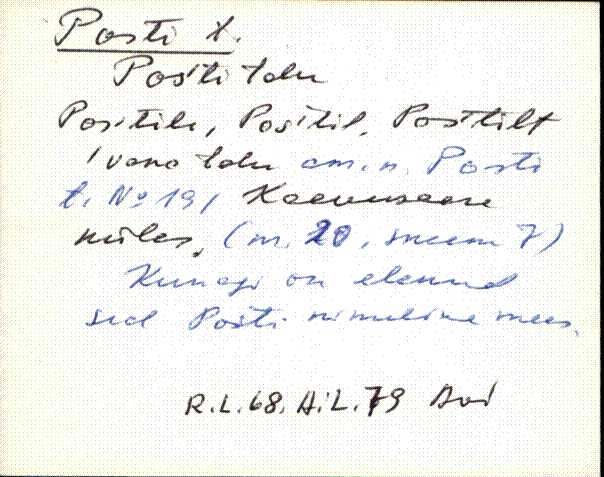 Posti t.
Pos'ti talu
Pos'tile, Pos'til, Pos'tilt
/ vana talu am. n. Posti
t. № 19 / Kaevusaare
külas. (m. 20, suum 7)
Kunagi on elanud
seal Posti nimeline mees.
R.L. 68. A.L. 79